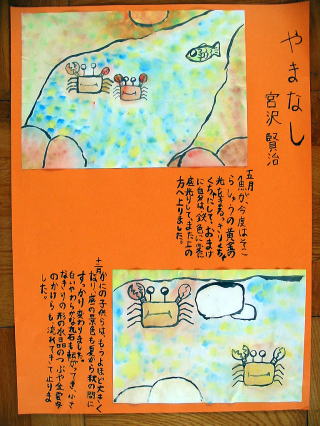 やまなし
宮沢 賢治
五月
魚が、今度はそこ
らじゅうの黄金の
光をまるっきりくちゃ
くちゃにして、おまけ
に自分は、鉄色に変に
底光りして、また上の
方へ上りました。
十二月かにの子供らは、もうよほど大きく
なり、底の景色も夏から秋の間に
すっかり変わりました。
白いやわらかな丸石も転がってき、小さ
なきりの形の水晶のつぶや金雲母
のかけらも、流れてきて止りま
した。